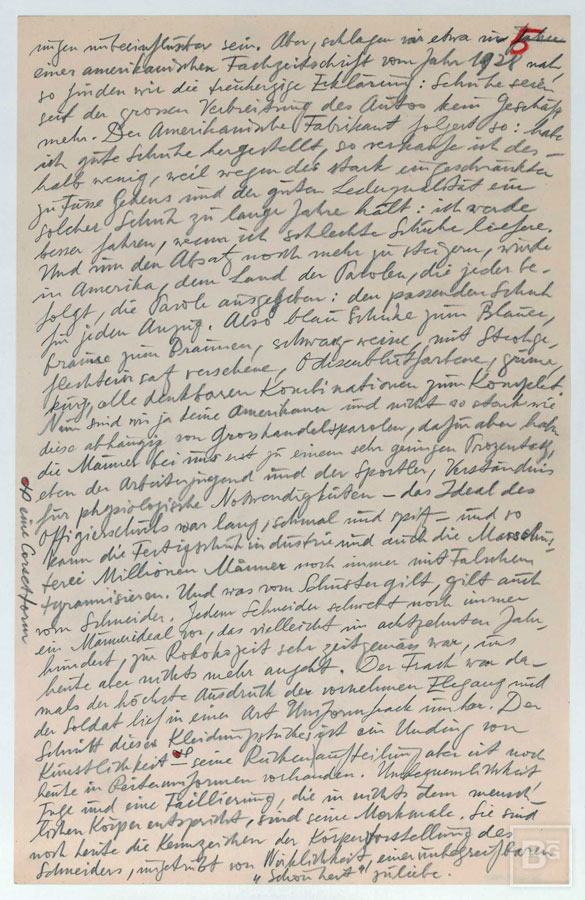 5
ungen unbeeinflussbar sein. Aber, schlagen wir etwa im Jahre
einer amerikanischen Fachzeitschrift vom Jahr 1928 nah,
so finden wir die treuherzige Erklärung: Schuhe seien
seit der grossen Verbreitung des Autos kein Geschäft
mehr. Der Amerikanische Fabrikant folgert so: habe
ich gute Schuhe hergestellt, so verkaufe ich des-
halb wenig, weil wegen des stark eingeschränkten
zu Fusse Gehens und der guten Lederqualität ein
solcher Schuh zu lange Jahre hält: ich werde
besser fahren, wenn ich schlechte Schuhe liefere.
Und um den Absatz noch mehr zu steigern, wurde
in Amerika, dem Land der Parolen, die jeder be-
folgt, die Parole ausgegeben: den passenden Schuh
für jeden Anzug. Also blau Schuhe zum Blauen,
braune zum Braunen, schwarz weisse, mit Strohge-
flechteinsatz versehene, Ochsenblutfarbene, grüne,
kurz, alle denkbaren Kombinationen zum Komplet.
Nun sind wir ja keine Amerikaner und nicht so stark wie
diese abhängig von Grosshandelsparolen, dafür aber haben
die Männer bei uns erst zu einem sehr geringen Prozentsatz,
eben der Arbeiterjugend und der Sportler, Verständnis
für physiologische Notwendigkeiten – das Ideal des
Offizierschuhs war lang, schmal und spitz – und so
kann die Fertigschuhindustrie und auch die Massschus-
terei Millionen Männer noch immer mit Falschem
tyrannisieren. Und was vom Schuster gilt, gilt auch
vom Schneider. Jedem Schneider schwebt noch immer
ein Männerideal vor, das vielleicht im achtzehnten Jahr-
hundert, zur Rokokozeit sehr zeitgemäss war, uns
heute aber nichts mehr angeht. Der Frack war da-
mals der höchste Ausdruck der vornehmen Eleganz und
der Soldat lief in einer Art Uniformfrack umher. Der
Schnitt dieses Kleidungstückes ist ein Unding von
Künstlichkeit seine Rückenaufteilung aber ist noch
heute in Reiteruniformen vorhanden. Unbequemlichkeit
Enge und eine Taillierung, die in nichts dem mensch-
lichen Körper entspricht, sind seine Merkmale. Sie sind
noch heute die Kennzeichen der Körpervorstellung des
Schneiders, ungetrübt von Wirklichkeit, einer unbegreifbaren
"Schönheit" zuliebe.
eine Corsettform
BG